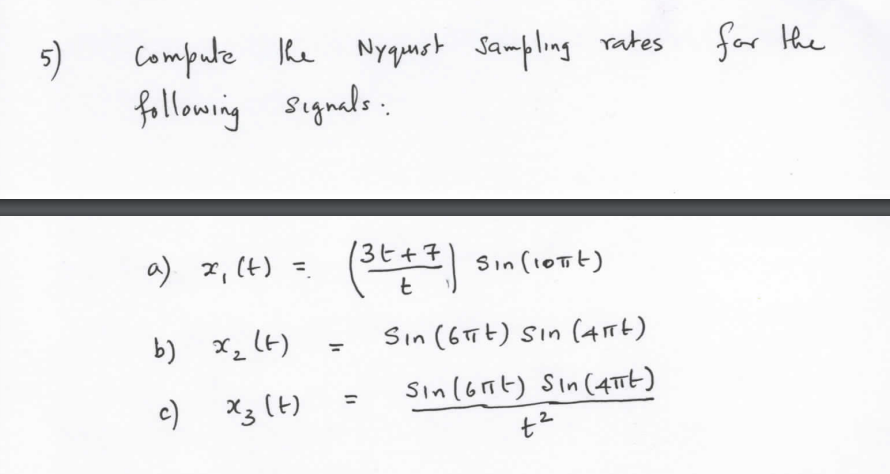 5) Compute the Nyquist Sampling rates for the
following signals:
a) x₁(t) = (3t+7/t) sin(10πt)
b) x₂(t) = sin(6πt) sin(4πt)
c) x₃(t) = sin(6πt) sin(4πt)/t²